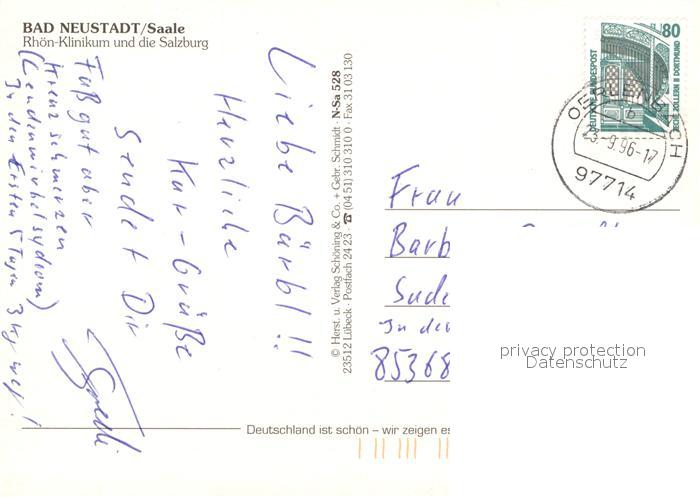 BAD NEUSTADT/Saale
Rhön-Klinikum und die Salzburg
Liebe Bärbl!!
Herzliche
Kur-Grüße
Sendet Dir
Fuß gut aber
Kreuzschmerzen
(Lendenwirbelsydrom)
In den Ersten 5 Tagen 3 kg weg!
© Herst. u. Verlag Schöning & Co. + Gebr. Schmidt · N-Sa 528
23512 Lübeck · Postfach 24 23 · ☎ (04 51) 310 310 0 · Fax 31 03 130
80
DEUTSCHE BUNDESPOST
ZECHE ZOLLERN II DORTMUND
OERLENBACH
23.-9.96-17
97714
Frau
Barb
Sude
In der
85368
privacy protection
Datenschutz
Deutschland ist schön – wir zeigen es